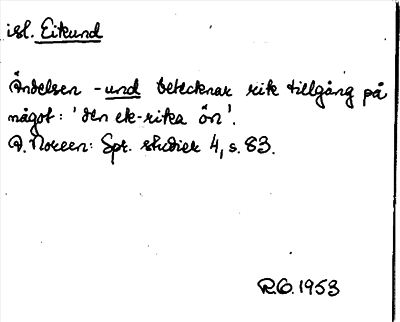 isl. Eikund
Ändelsen -und betecknar rik tillgång på
något: 'den ek-rika ön'.
A. Noreen: Spr. studier 4, s. 83.
R.O. 1953